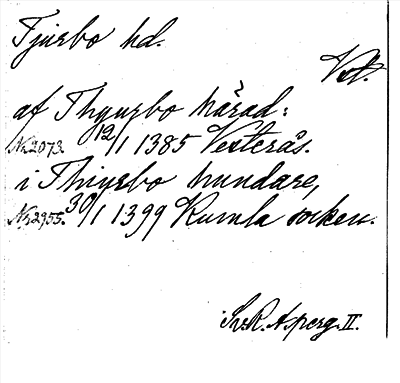 Tjurbo hd.
Vstl.
af Thyurbo härad:
Nr 2073. 12/1 1385 Vesterås.
i Thiyrbo hundare,
Nr 2955. 30/1 1399 Kumla socken.
Sv. R. A. perg. II.